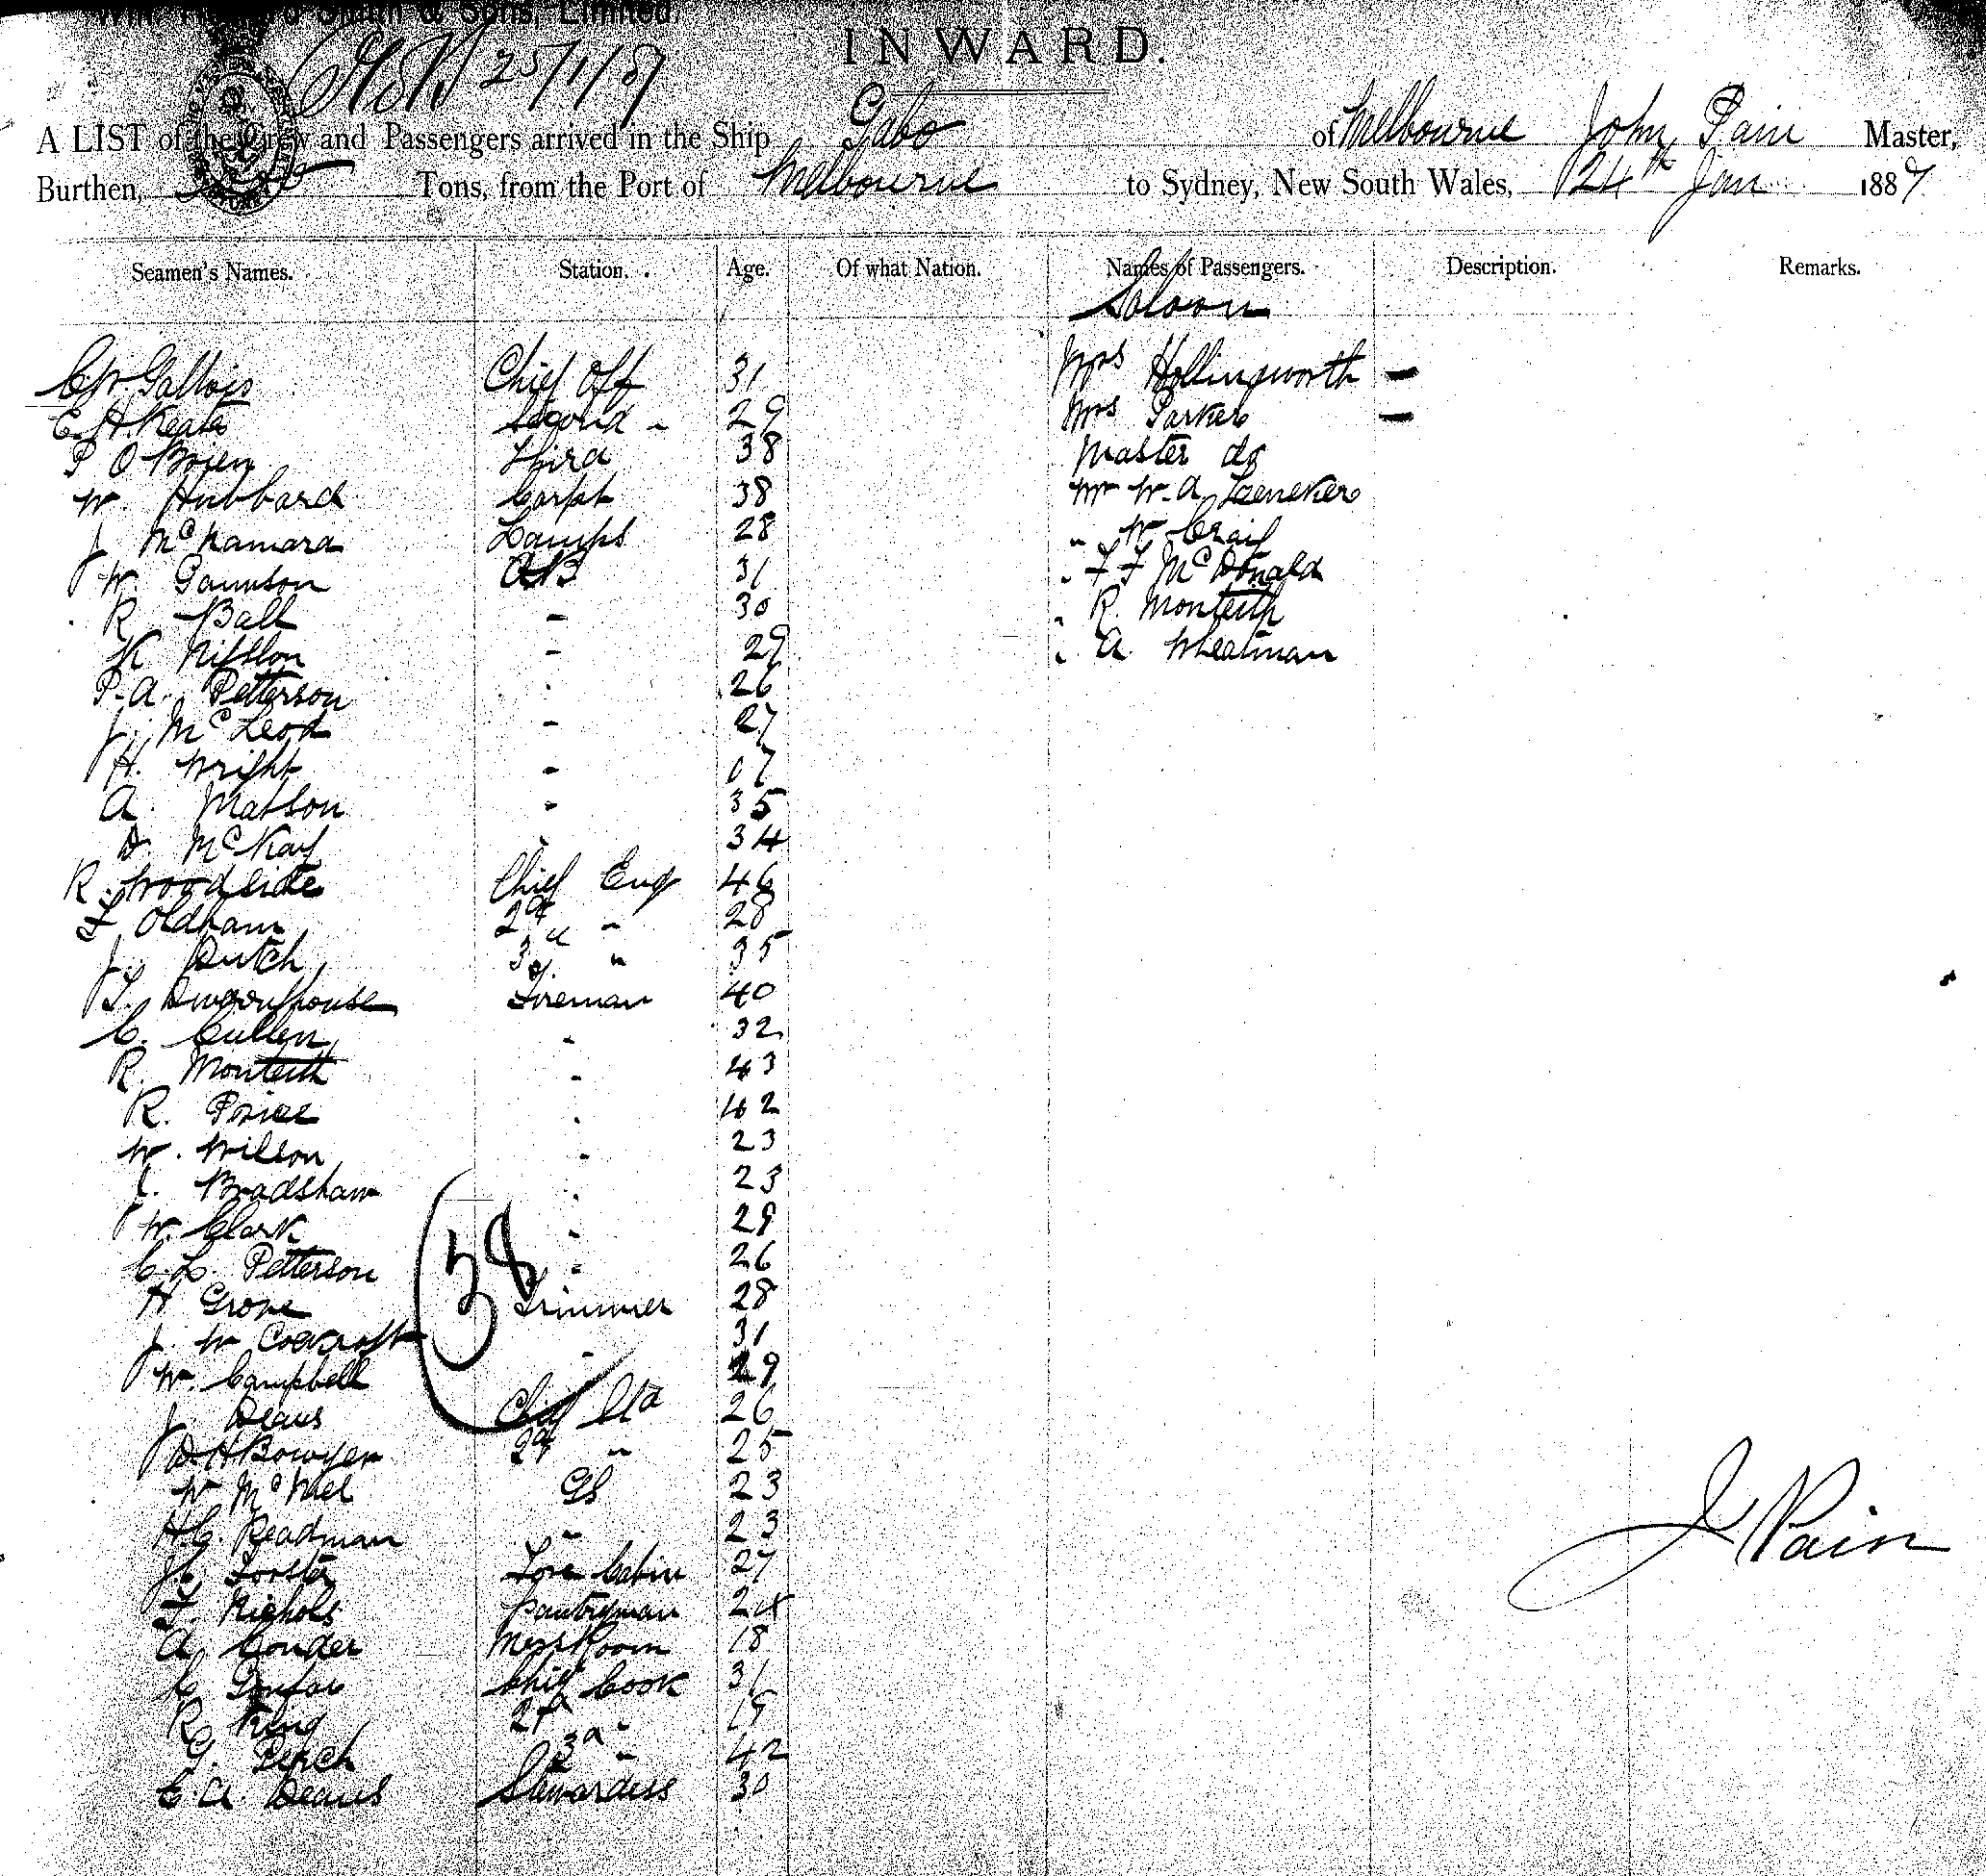 Wm. Howard Smith & Sons, Limited.
INWARD.
25/1/87
A LIST of the Crew and Passengers arrived in the Ship Gabo of Melbourne John Pain Master,
Burthen, Tons, from the Port of Melbourne to Sydney, New South Wales, 24th Jan 1887
Seamen's Names. Station. Age. Of what Nation. Names of Passengers. Description. Remarks.
Saloon
Gallois Chief Off 31 Mrs Hollingsworth —
E. H. Keats Second " 29 Mrs Parker —
P O'Brien Third 38 Master do
W. Hubbard Carpt 38 Mr W. A.
J McNamara Lamps 28 " W Craig
W. AB 31 " F F McDonald
R Ball - 30 " R. Monteith
K Nilsson - 29 " A. Wheatman
P. A. Petterson - 26
J. McLeod - 27
H. Wright -
A. Matson - 35
D. McKay 34
R. Woodside Chief Eng 46
F Oldham 2d " 28
J. Dutch 3d " 35
T. Fireman 40
C. Cullen - 32
R. Monteith - 43
R. Price - 42
W. Wilson - 23
Bradshaw - 23
W. Clark - 29
C. L. Petterson - 26
H Grove Trimmer 28
J. W Cockcroft - 31
W. Campbell 29
J Deans Chief Std 26
D H Bowyer 2d " 25
W McNeel GS 23
H. C. Readman - 23
Forster Fore Cabin 27
T. Nichols Pantryman 24
A. Conder Mess Room 18
C. Chief Cook 31
R. King 2d " 19
G. Perch 3d " 42
E. A. Deans Stewardess 30
38
J Pain